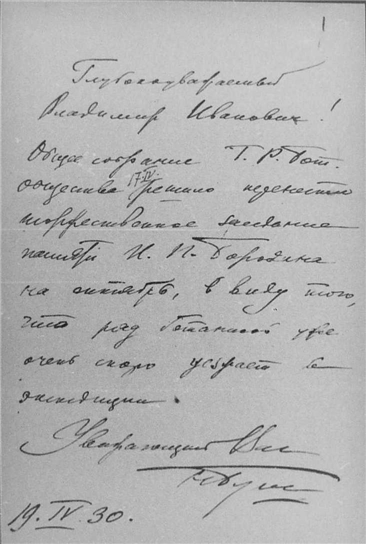 1
Глубокоуважаемый
Владимир Иванович!
Общее собрание Г. Р. Бот.
общества 17.IV. решило перенести
торжественное заседание
памяти И. П. Бородина
на октябрь, в виду того,
что ряд ботаников уже
очень скоро уезжает в
экспедиции
Уважающий Вас
19. IV. 30.